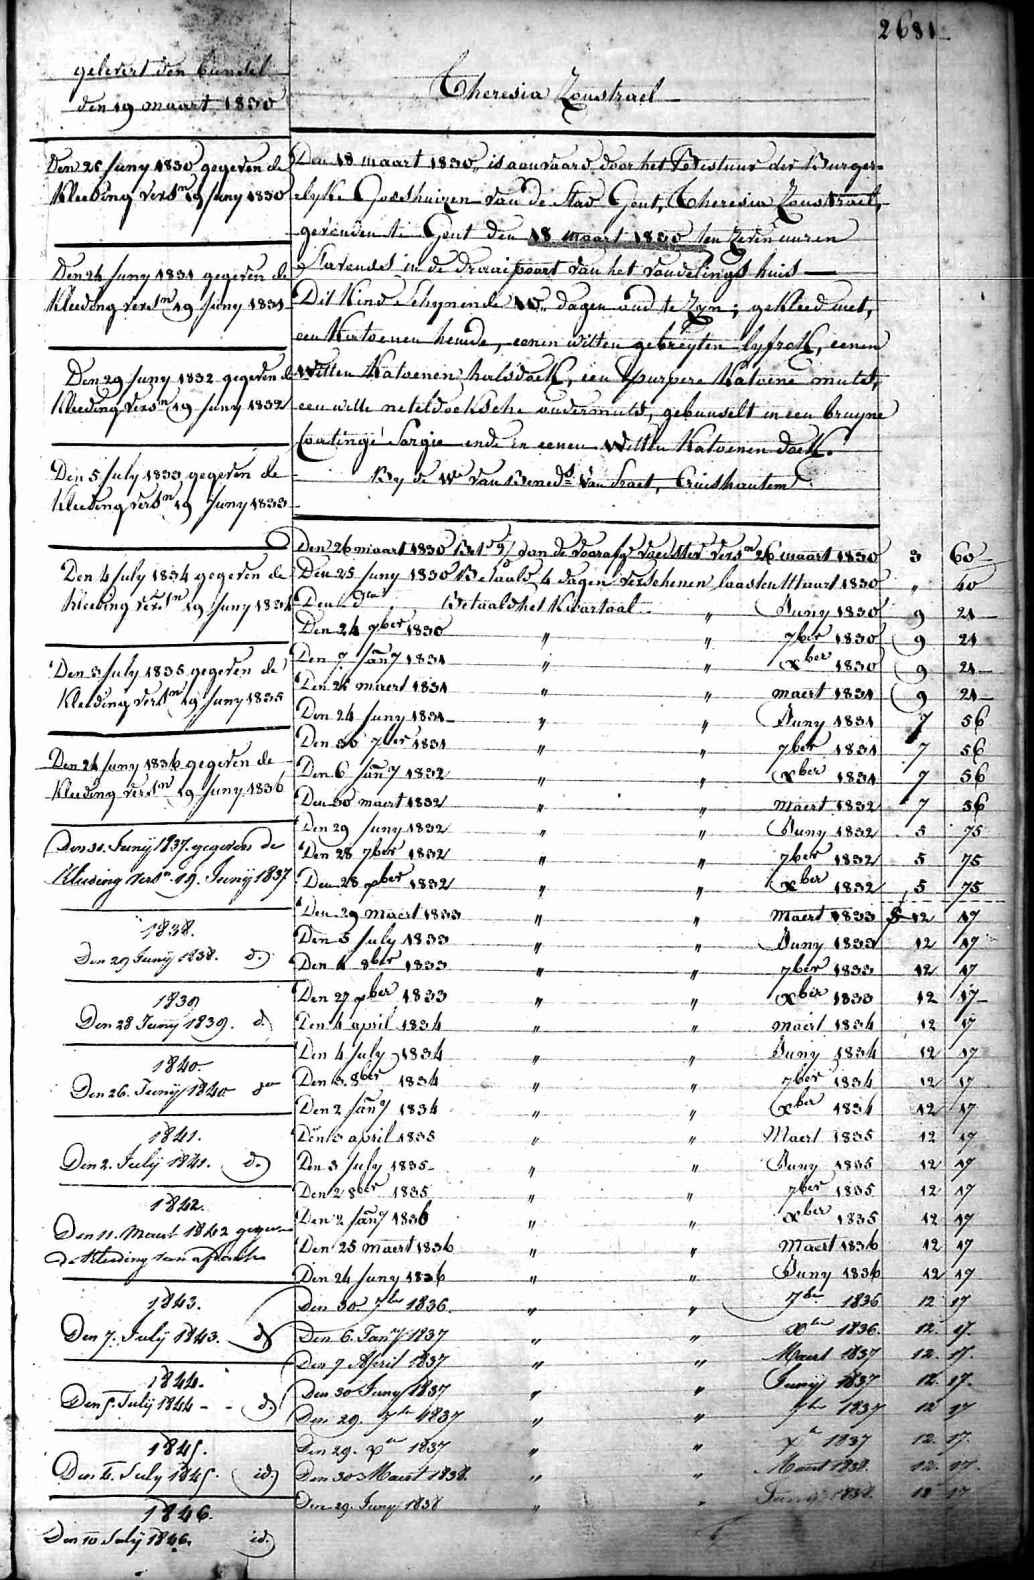 2681
gelevert den bundel
den 19 maart 1830
Theresia Zoustrael
Den 25 Juny 1830 gegeven de
Kleeding versn 19 Juny 1830
Den 24 Juny 1831 gegeven de
Kleeding versn 19 Juny 1831
Den 29 Juny 1832 gegeven de
Kleeding versn 19 Juny 1832
Den 5 July 1833 gegeven de
Kleeding versn 19 Juny 1833
Den 4 July 1834 gegeven de
Kleeding versn 19 Juny 1834
Den 3 July 1835 gegeven de
Kleeding versn 19 Juny 1835
Den 24 Juny 1836 gegeven de
Kleeding versn 19 Juny 1836
Den 30. Junij 1837. gegeven de
Kleeding versn. 19. Junij 1837
1838.
Den 29 Junij 1838. d.
1839
Den 28 Junij 1839. d.
1840.
Den 26. Junij 1840
1841.
Den 2. Julij 1841. d.
1842.
Den 11. Maart 1842 gegeven
de Kleeding van
1843.
Den 7. Julij 1843. d
1844.
Den 5. Julij 1844 - - d.
1845.
Den 4. July 1845. id.
1846.
Den 10 Julij 1846. id.
Den 18 maart 1830, is aanvaard door het Bestuur der Burger-
elyke Godshuizen van de Stad Gent, Theresia Zoustrael,
gevonden te Gent den 18 maart 1830 ten zeven uuren
s'avonds in de draaipoort van het vondelings huis
Dit Kind schynende 10 dagen oud te zyn; gekleed met,
een Katoenen hemde, eenen witten gebreyten lyfrok, eenen
witten Katoenen halsdoek, een purpere Katoene muts,
een witte neteldoeksche ondermuts, gebunselt in een bruyne
Coatinge Sargie ende in eenen witten Katoenen doek.
By de We van Bened. Van Praet, Cruishautem.
Den 26 maart 1830 Bet. van de voorafg. versn 26 maart 1830 3 60
Den 25 Juny 1830 Betaald 4 dagen verschenen laasten Maart 1830 " 40
Den do Betaald het Kwartaal " Juny 1830 9 21
Den 24 7ber 1830 " " 7ber 1830 9 21
Den 7 Jany 1831 " " Xber 1830 9 21
Den 26 maert 1831 " " maert 1831 9 21
Den 24 Juny 1831 " " Juny 1831 7 56
Den 30 7ber 1831 " " 7ber 1831 7 56
Den 6 Jany 1832 " " Xber 1831 7 56
Den 30 maert 1832 " " Maert 1832 7 56
Den 29 Juny 1832 " " Juny 1832 5 75
Den 28 7ber 1832 " " 7ber 1832 5 75
Den 28 xber 1832 " " Xber 1832 5 75
Den 29 Maert 1833 " " Maert 1833 12 17
Den 5 July 1833 " " Juny 1833 12 17
Den 4 8ber 1833 " " 7ber 1833 12 17
Den 27 xber 1833 " " Xber 1833 12 17
Den 4 april 1834 " " maert 1834 12 17
Den 4 July 1834 " " Juny 1834 12 17
Den 3 8ber 1834 " " 7ber 1834 12 17
Den 2 Jany 1834 " " Xber 1834 12 17
Den 3 april 1835 " " Maert 1835 12 17
Den 3 July 1835 " " Juny 1835 12 17
Den 2 8ber 1835 " " 7ber 1835 12 17
Den 2 Jany 1836 " " Xber 1835 12 17
Den 25 maert 1836 " " Maert 1836 12 17
Den 24 Juny 1836 " " Juny 1836 12 17
Den 30 7ber 1836. " " 7ber 1836 12 17
Den 6. Jany 1837 " " Xber 1836. 12. 17.
Den 7 April 1837 " " Maert 1837 12. 17.
Den 30 Juny 1837 " " Junij 1837 12. 17.
Den 29. 7ber 1837 " " 7ber 1837 12 17
Den 29. Xber 1837 " " Xber 1837 12. 17.
Den 30 Maert 1838. " " Maert 1838. 12. 17.
Den 29. Juny 1838 " " Juny 1838. 12 17